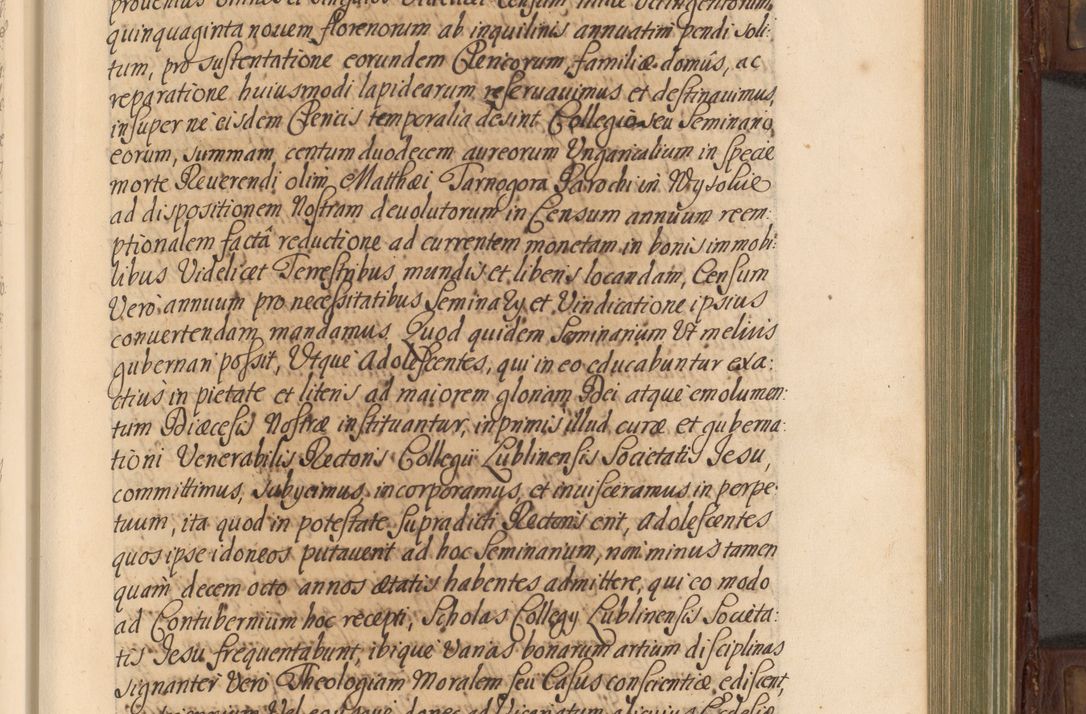 prouentus omnes et singulos videlicet censum, mille
quinquaginta nouem florenorum ab inquilinis annuatim pendi soli:
tum, pro sustentatione eorundem Clericorum, familiæ domûs, ac
reparatione huiusmodi lapidearum reseruauimus et destinauimus,
insuper ne eisdem Clericis temporalia desint Collegio seu Seminario
eorum, summam centum duodecem aureorum Ungaricalium in specie
morte Reuerendi olim Matthæi Tarnogora Parochi in Wysokie
ad dispositionem Nostram deuolutorum in Censum annuum reem:
ptionalem factâ reductione ad currentem monetam in bonis immobi:
libus Videlicet Terrestribus mundis et liberis locandam, Censum
Vero annuum pro necessitatibus Seminary et Vindicatione ipsius
conuertendam mandamus. Quod quidem Seminarium Ut meliùs
gubernari possit, Utque Adolescentes, qui in eo educabuntur exa:
ctiùs in pietate et literis ad maiorem gloriam Dei atque emolumen:
tum Diæcesis Nostræ instituantur, inprimis illud curæ et guberna:
tioni Venerabilis Rectoris Collegii Lublinensis Societatis Jesu,
committimus, subycimus, incorporamus, et inuisceramus in perpe:
tuum, ita quod in potestate supradicti Rectoris erit, Adolescentes
quos ipse idoneos putauerit ad hoc Seminarium, non minus tamen
quàm decem octo annos ætatis habentes admittere, qui eo modo
ad Contubernium hoc recepti, Scholas Collegy Lublinensis Societa:
tis Jesu frequentabunt, ibique varias bonarum artium disciplinas
signanter Vero Theologiam Moralem seu Casus conscientiæ ediscent,